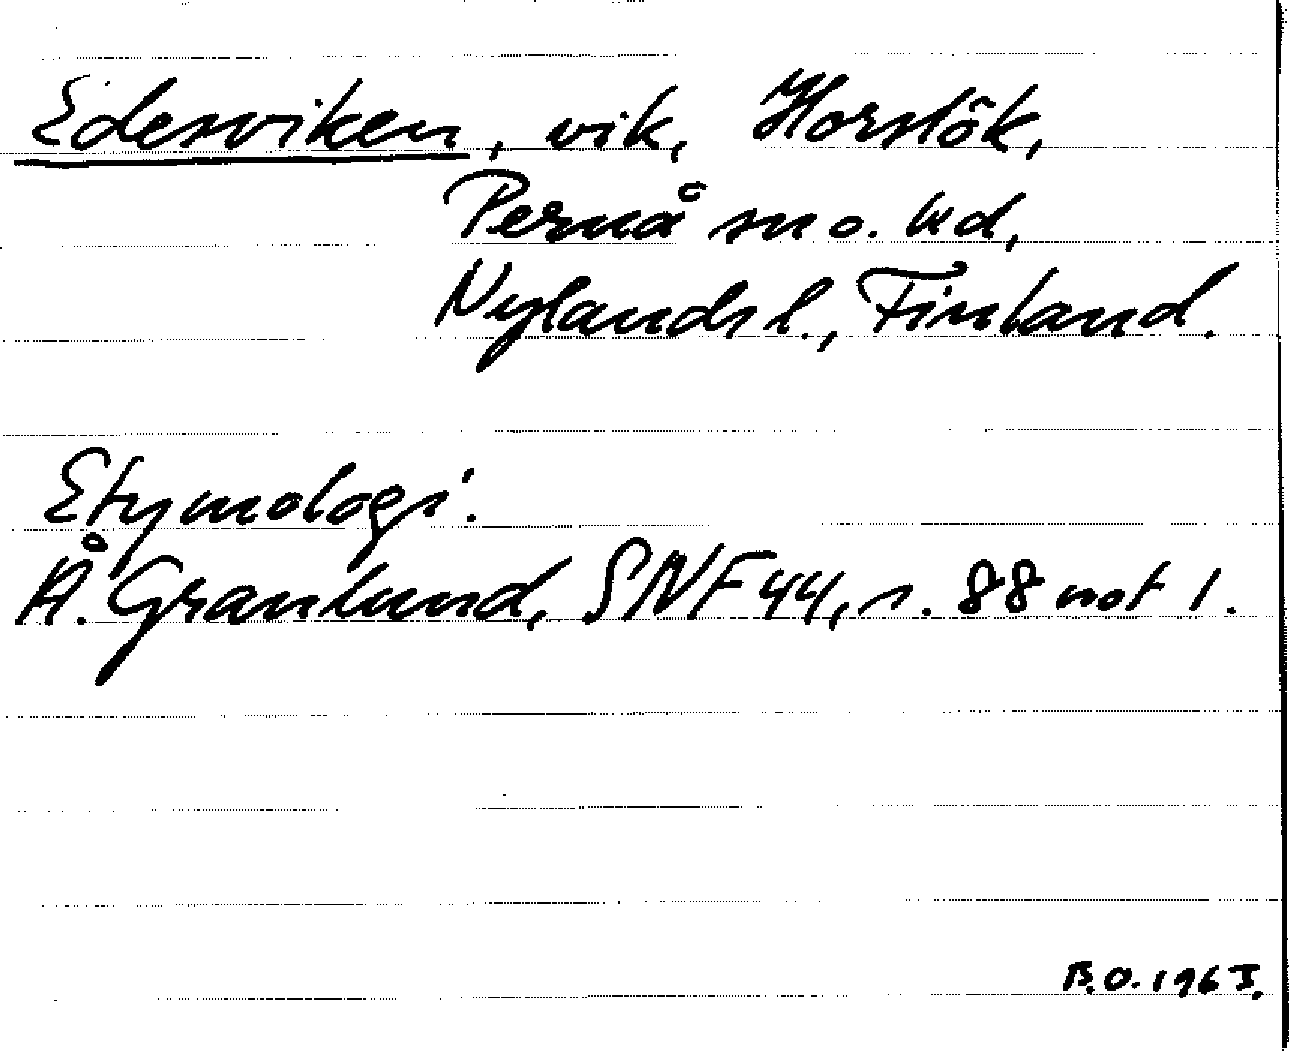 Edesviken, vik, Horslök,
Pernå sn o. hd,
Nylands l., Finland.
Etymologi.
Å. Granlund, SNF 44, s. 88 not 1.
B.O. 196